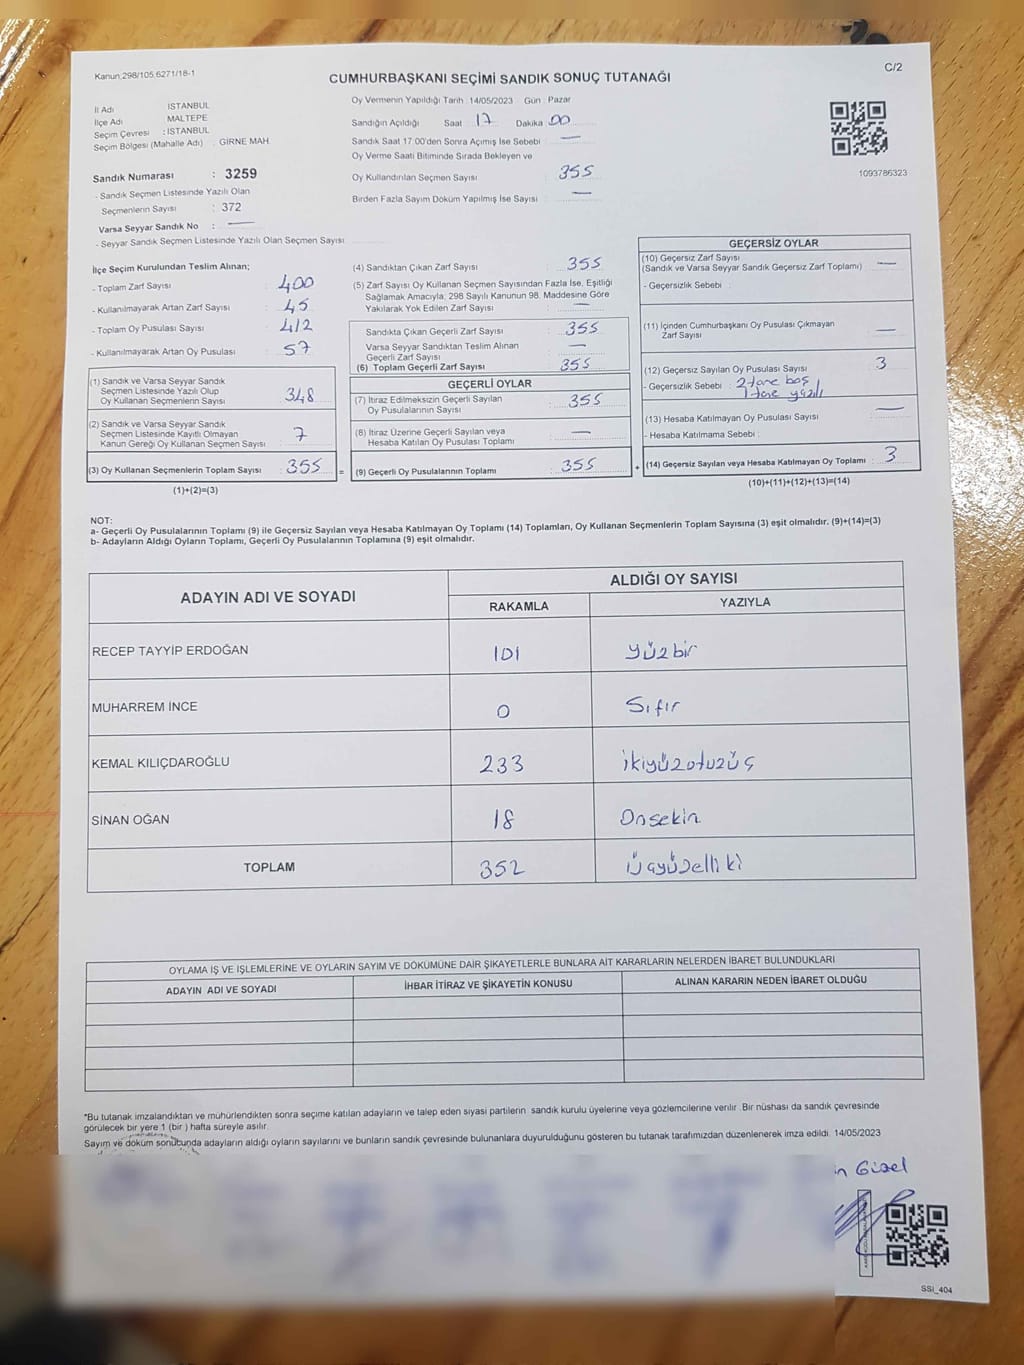 Kanun;298/105,6271/18-1
CUMHURBAŞKANI SEÇİMİ SANDIK SONUÇ TUTANAĞI
C/2
İl Adı İSTANBUL
İlçe Adı MALTEPE
Seçim Çevresi : İSTANBUL
Seçim Bölgesi (Mahalle Adı) . GİRNE MAH.
Oy Vermenin Yapıldığı Tarih :14/05/2023 Gün : Pazar
Sandığın Açıldığı Saat 17 Dakika 00
Sandık Saat 17:00'den Sonra Açımış İse Sebebi : —
Oy Verme Saati Bitiminde Sırada Bekleyen ve
Oy Kullandırılan Seçmen Sayısı : 355
Birden Fazla Sayım Döküm Yapılmış İse Sayısı : —
1093786323
Sandık Numarası : 3259
- Sandık Seçmen Listesinde Yazılı Olan
Seçmenlerin Sayısı : 372
Varsa Seyyar Sandık No : —
- Seyyar Sandık Seçmen Listesinde Yazılı Olan Seçmen Sayısı
İlçe Seçim Kurulundan Teslim Alınan;
- Toplam Zarf Sayısı : 400
- Kullanılmayarak Artan Zarf Sayısı : 45
- Toplam Oy Pusulası Sayısı : 412
- Kullanılmayarak Artan Oy Pusulası : 57
(1) Sandık ve Varsa Seyyar Sandık
Seçmen Listesinde Yazılı Olup
Oy Kullanan Seçmenlerin Sayısı : 348
(2) Sandık ve Varsa Seyyar Sandık
Seçmen Listesinde Kayıtlı Olmayan
Kanun Gereği Oy Kullanan Seçmen Sayısı : 7
(3) Oy Kullanan Seçmenlerin Toplam Sayısı : 355 =
(1)+(2)=(3)
(4) Sandıktan Çıkan Zarf Sayısı : 355
(5) Zarf Sayısı Oy Kullanan Seçmen Sayısından Fazla İse, Eşitliği
Sağlamak Amacıyla; 298 Sayılı Kanunun 98. Maddesine Göre
Yakılarak Yok Edilen Zarf Sayısı : —
Sandıkta Çıkan Geçerli Zarf Sayısı : 355
Varsa Seyyar Sandıktan Teslim Alınan
Geçerli Zarf Sayısı : —
(6) Toplam Geçerli Zarf Sayısı : 355
GEÇERLİ OYLAR
(7) İtiraz Edilmeksizin Geçerli Sayılan
Oy Pusulalarının Sayısı : 355
(8) İtiraz Üzerine Geçerli Sayılan veya
Hesaba Katılan Oy Pusulası Toplamı : —
(9) Geçerli Oy Pusulalarının Toplamı : 355 +
GEÇERSİZ OYLAR
(10) Geçersiz Zarf Sayısı
(Sandık ve Varsa Seyyar Sandık Geçersiz Zarf Toplamı) : —
- Geçersizlik Sebebi :
(11) İçinden Cumhurbaşkanı Oy Pusulası Çıkmayan
Zarf Sayısı : —
(12) Geçersiz Sayılan Oy Pusulası Sayısı : 3
- Geçersizlik Sebebi : 2 tane boş
1 tane yazılı
(13) Hesaba Katılmayan Oy Pusulası Sayısı : —
- Hesaba Katılmama Sebebi :
(14) Geçersiz Sayılan veya Hesaba Katılmayan Oy Toplamı : 3
(10)+(11)+(12)+(13)=(14)
NOT:
a- Geçerli Oy Pusulalarının Toplamı (9) ile Geçersiz Sayılan veya Hesaba Katılmayan Oy Toplamı (14) Toplamları, Oy Kullanan Seçmenlerin Toplam Sayısına (3) eşit olmalıdır. (9)+(14)=(3)
b- Adayların Aldığı Oyların Toplamı, Geçerli Oy Pusulalarının Toplamına (9) eşit olmalıdır.
ADAYIN ADI VE SOYADI ALDIĞI OY SAYISI
RAKAMLA YAZIYLA
RECEP TAYYİP ERDOĞAN 101 yüzbir
MUHARREM İNCE 0 Sıfır
KEMAL KILIÇDAROĞLU 233 ikiyüzotuzüç
SİNAN OĞAN 18 Onsekin
TOPLAM 352 Üçyüzelliki
OYLAMA İŞ VE İŞLEMLERİNE VE OYLARIN SAYIM VE DÖKÜMÜNE DAİR ŞİKAYETLERLE BUNLARA AİT KARARLARIN NELERDEN İBARET BULUNDUKLARI
ADAYIN ADI VE SOYADI İHBAR İTİRAZ VE ŞİKAYETİN KONUSU ALINAN KARARIN NEDEN İBARET OLDUĞU
*Bu tutanak imzalandıktan ve mühürlendikten sonra seçime katılan adayların ve talep eden siyasi partilerin sandık kurulu üyelerine veya gözlemcilerine verilir. Bir nüshası da sandık çevresinde
görülecek bir yere 1 (bir ) hafta süreyle asılır.
Sayım ve döküm sonucunda adayların aldığı oyların sayılarını ve bunların sandık çevresinde bulunanlara duyurulduğunu gösteren bu tutanak tarafımızdan düzenlenerek imza edildi. 14/05/2023
SSİ_404